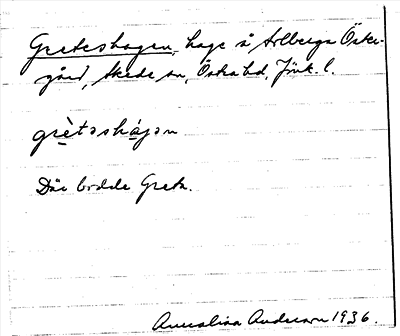 Greteshagen, hage å Arlberga Öster-
gård, Skede sn, Östra hd, Jönk. l.
grètəshágən
Där bodde Greta.
Annalisa Anderson 1936.